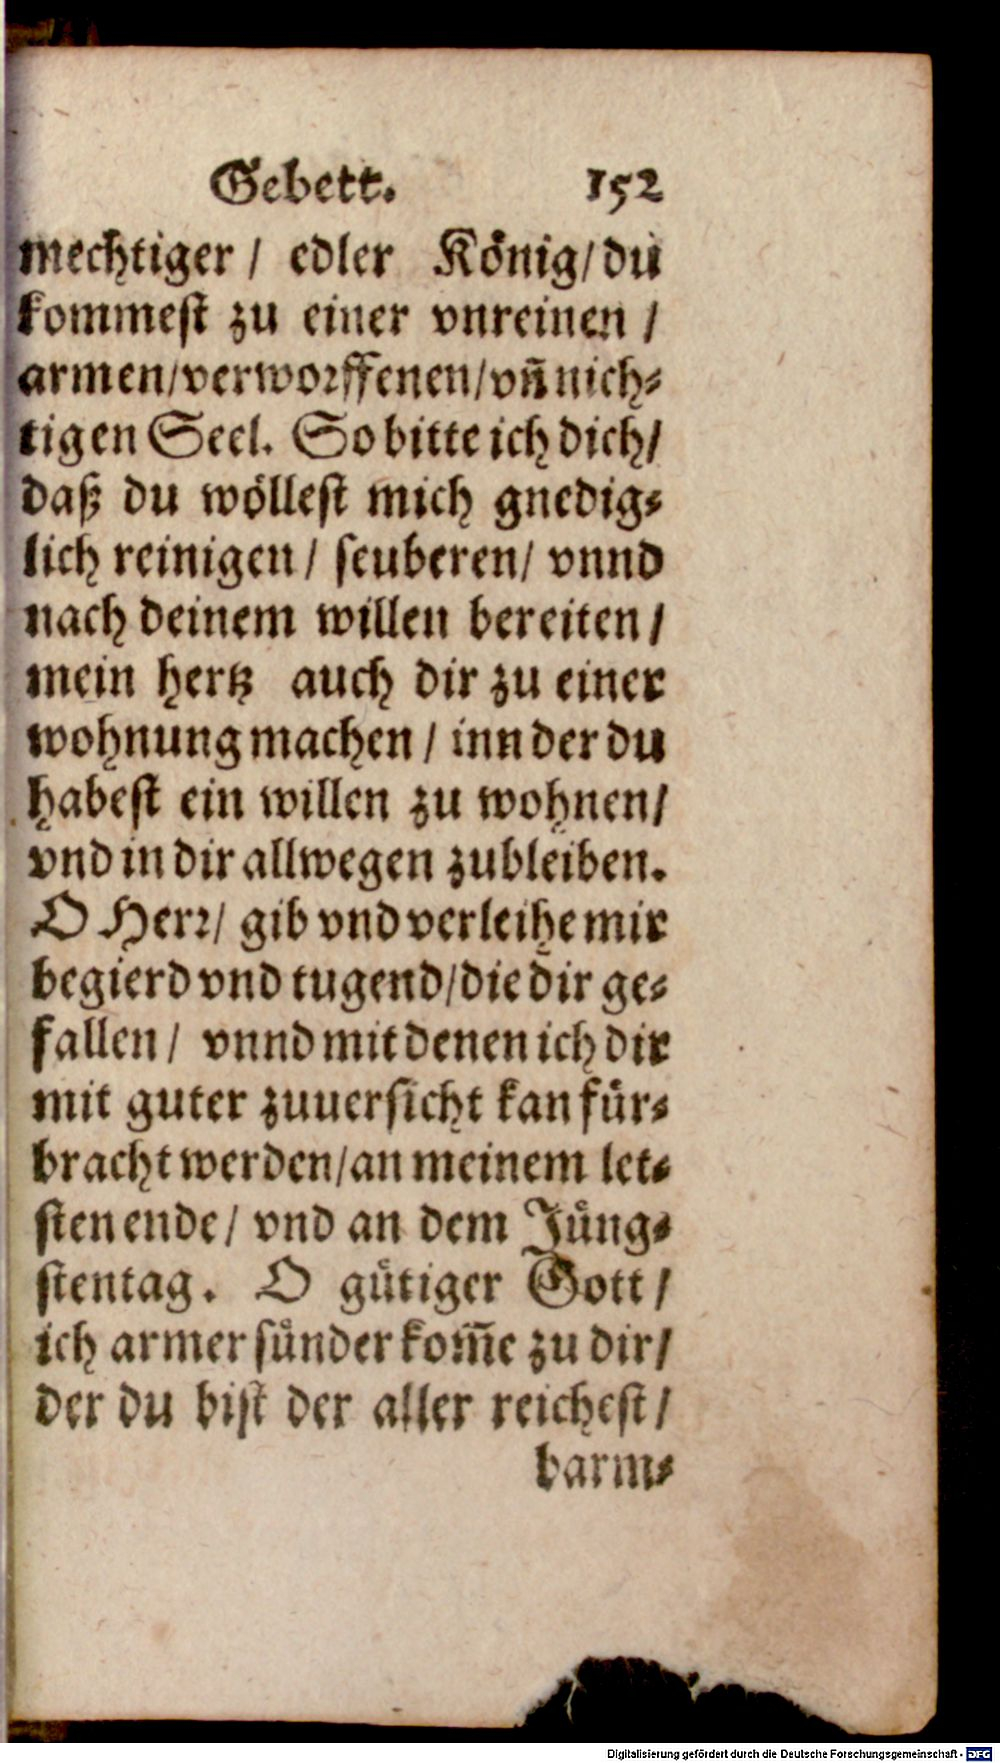 Gebett. 152
mechtiger / edler König/ du
kommest zu einer vnreinen /
armen/verworffenen/vñ nich⸗
tigen Seel. So bitte ich dich/
daß du wöllest mich gnedig⸗
lich reinigen / seuberen/ vnnd
nach deinem willen bereiten /
mein hertz auch dir zu einer
wohnung machen / inn der du
habest ein willen zu wohnen/
vnd in dir allwegen zubleiben.
O Herr/ gib vnd verleihe mir
begierd vnd tugend/die dir ge⸗
fallen / vnnd mit denen ich dir
mit guter zuuersicht kan für⸗
bracht werden/an meinem let⸗
sten ende/ vnd an dem Jüng⸗
stentag. O gütiger Gott /
ich armer sünder kom̃e zu dir/
der du bist der aller reichest /
barm⸗
Digitalisierung gefördert durch die Deutsche Forschungsgemeinschaft - DFG